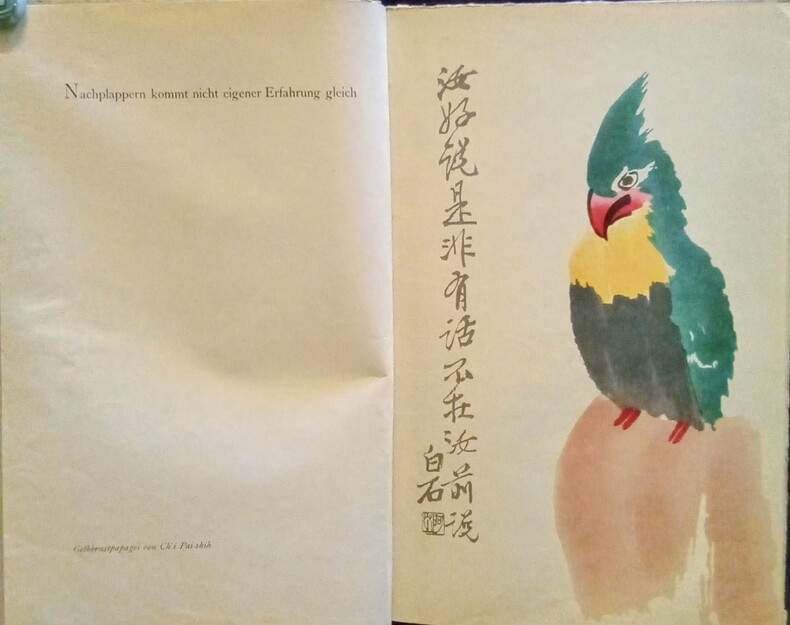 Nachplappern kommt nicht eigener Erfahrung gleich
Gelbbrustpapagei von Ch'i Pai-shih
汝好说是非有话不在汝前说
白石